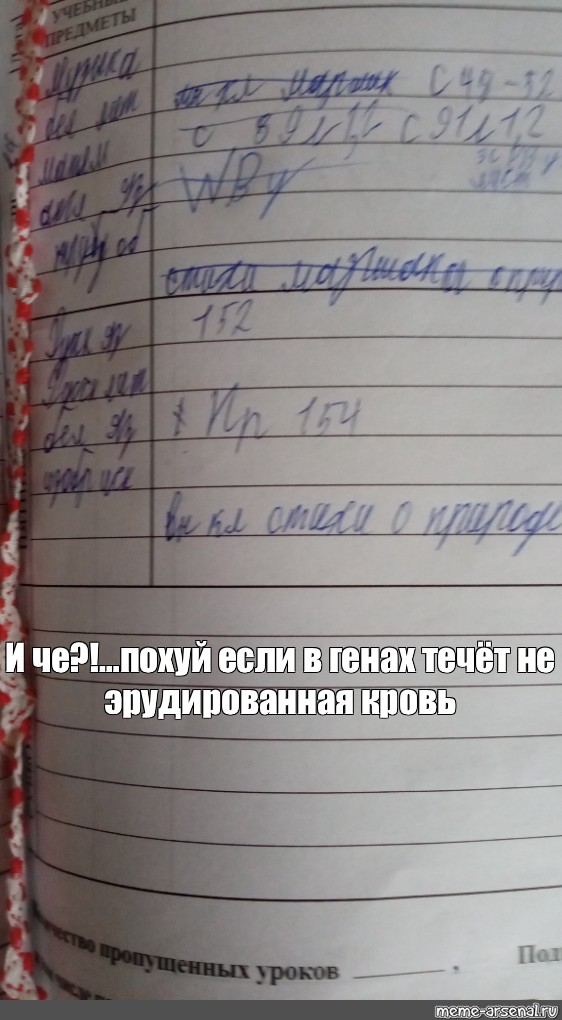 УЧЕБНЫЕ
ПРЕДМЕТЫ
Музыка
бел лит вн кл Маршак С 49-52
матем с 89 №1,2 с 91 №1,2
англ яз WBy
труд об
стихи маршака о при
Русск яз 152
Русск лит
бел яз Пр 154
изобр иск
Вн кл стихи о природе
И че?!...похуй если в генах течёт не
эрудированная кровь
пропущенных уроков ______ ,
meme-arsenal.ru